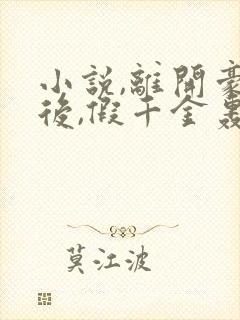 小說,離開豪
後,假千金轟
莫江波